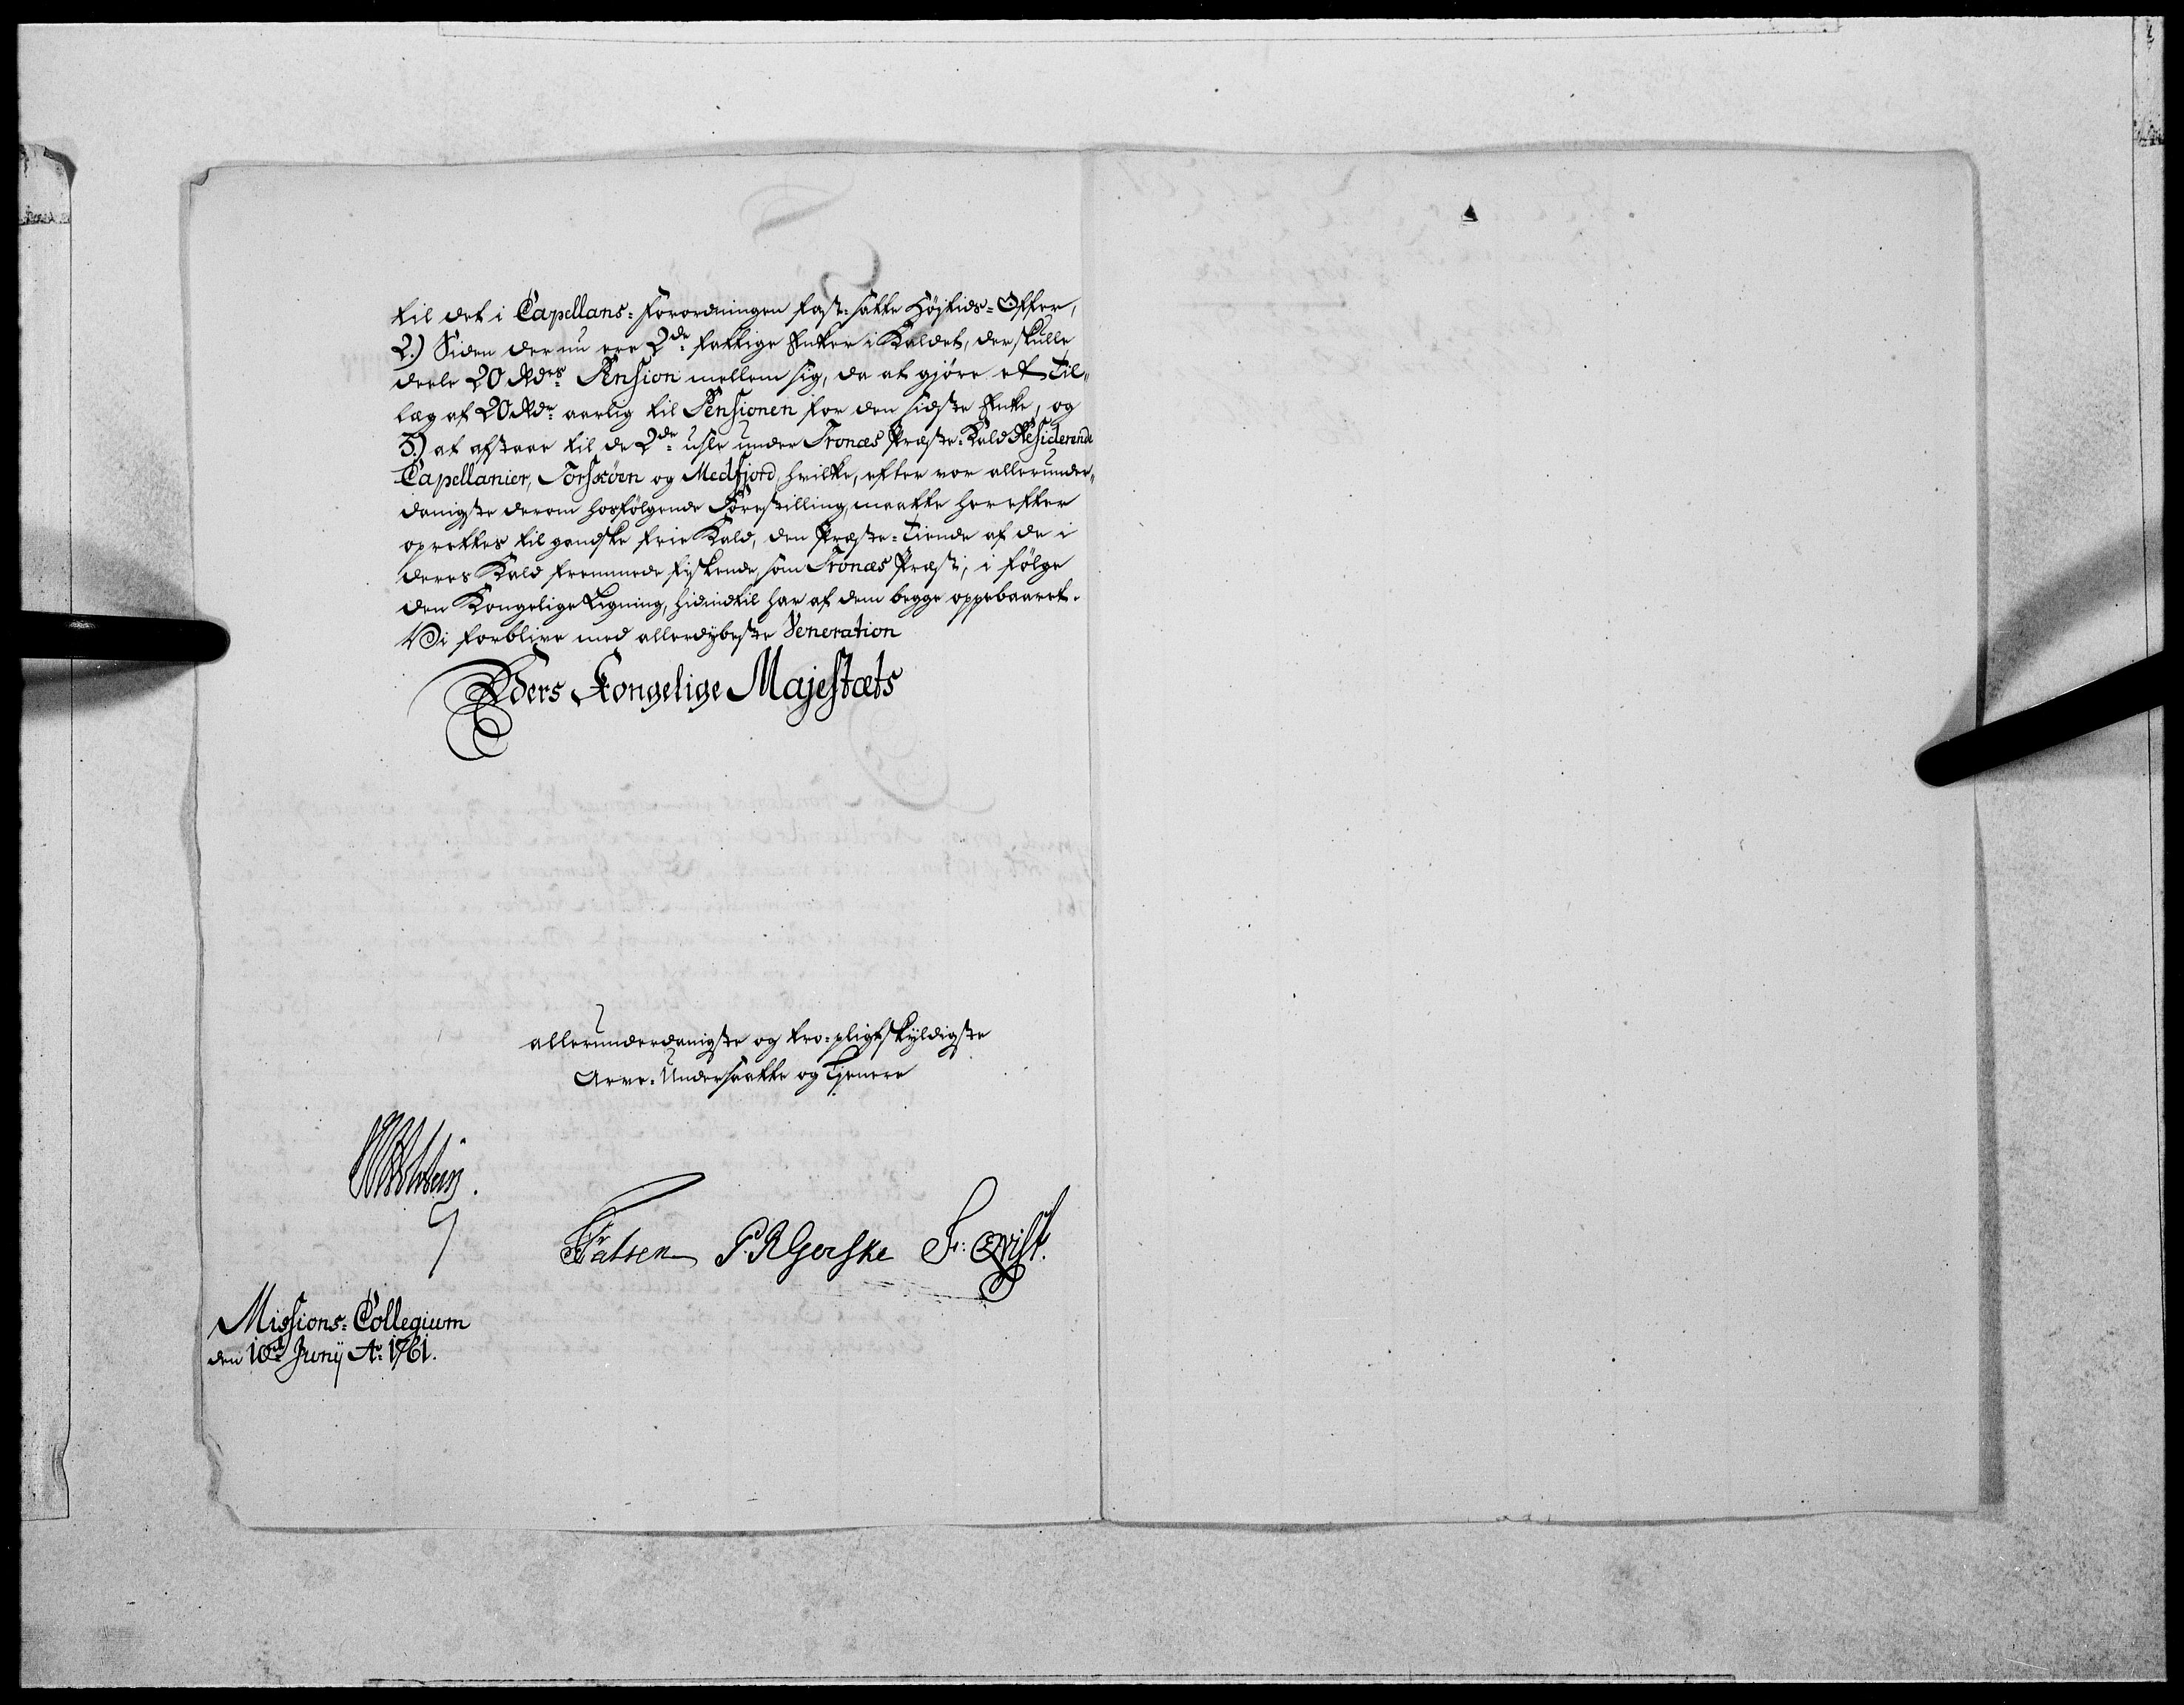 til det i Capellans-Forordningen fast-satte Højtids-Offer,
2.) Siden der nu ere 2de fattige Enker i Kaldet, der skulle
deele 20 Rdrs Pension mellem sig, da at gjøre et Til„
læg af 20 Rdr aarlig til Pensionen for den sidste Enke, og
3.) at afstaae til de 2de usle under Tronæs Præste-Kald Residerende
Capellanier, Torskøen og Medfjord, hvilke, efter vor allerunder„
danigste derom hosfølgende Forestilling, maatte herefter
oprettes til gandske frie Kald, den Præste-Tiende af de i
deres Kald fremmede fiskende, som Tronæs Præst, i følge
den Kongelige Ligning, hidindtil har af dem begge oppebaaret.
Vi forblive med allerdybeste Veneration
Eders Kongelige Majestæts
allerunderdanigste og tro-pligtskyldigste
Arve-Undersaatte og Tjenere
Holstein.
Fr Fatsen P. R Gerske Fr: Qvist.
Missions-Collegium
den 10de Junij Ao 1761.